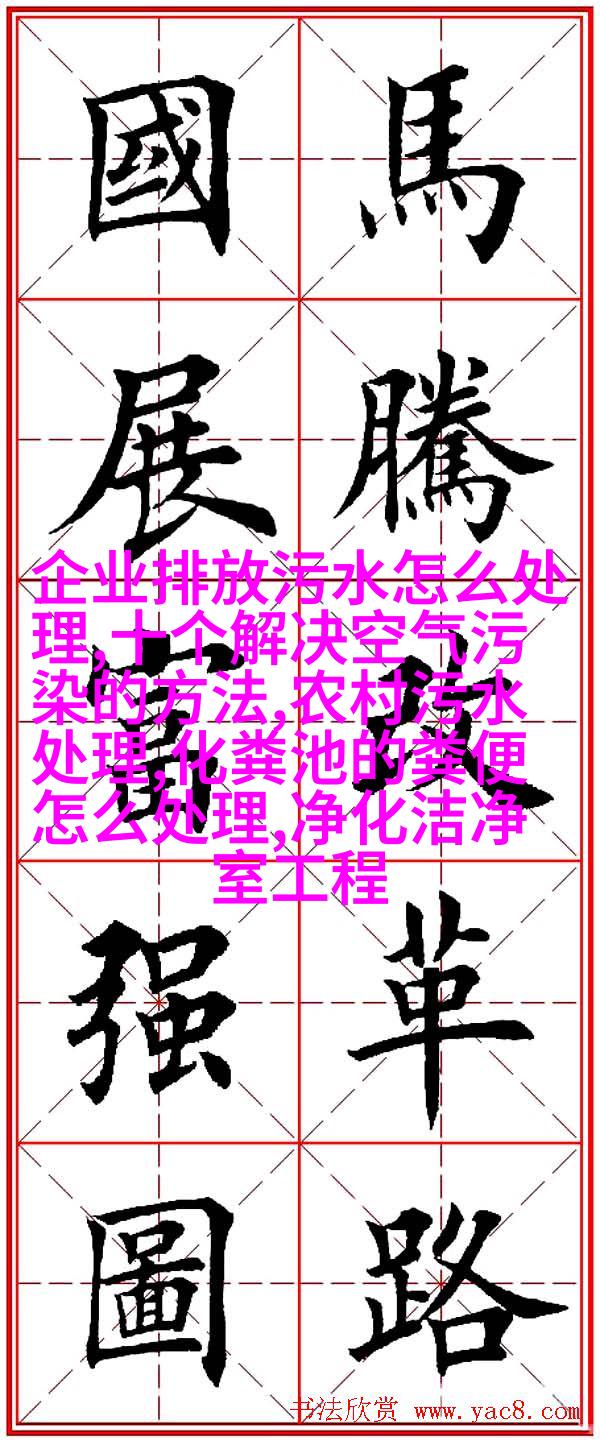 馬騰改革路
國展富强圖
企业排放污水怎么处
理,十个解决空气污
染的方法,农村污水
处理,化粪池的粪便
怎么处理,净化洁净
室工程
书法欣赏 www.yac8.com